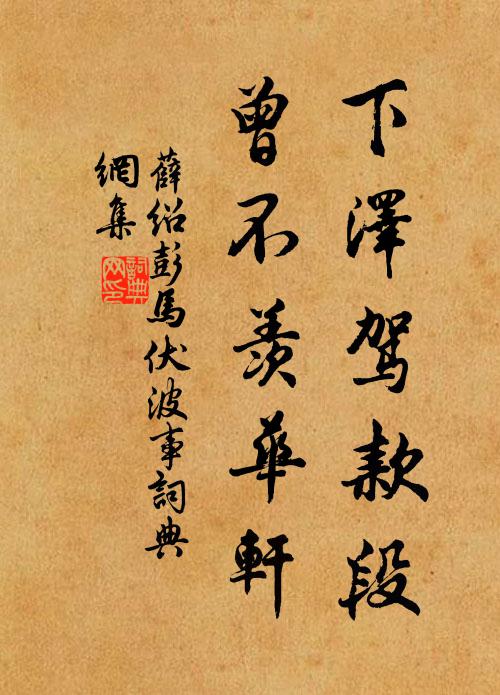 下澤駕款段
曾不羨華軒
薛紹彭馬伏波事詞典
網集
詞典
网印